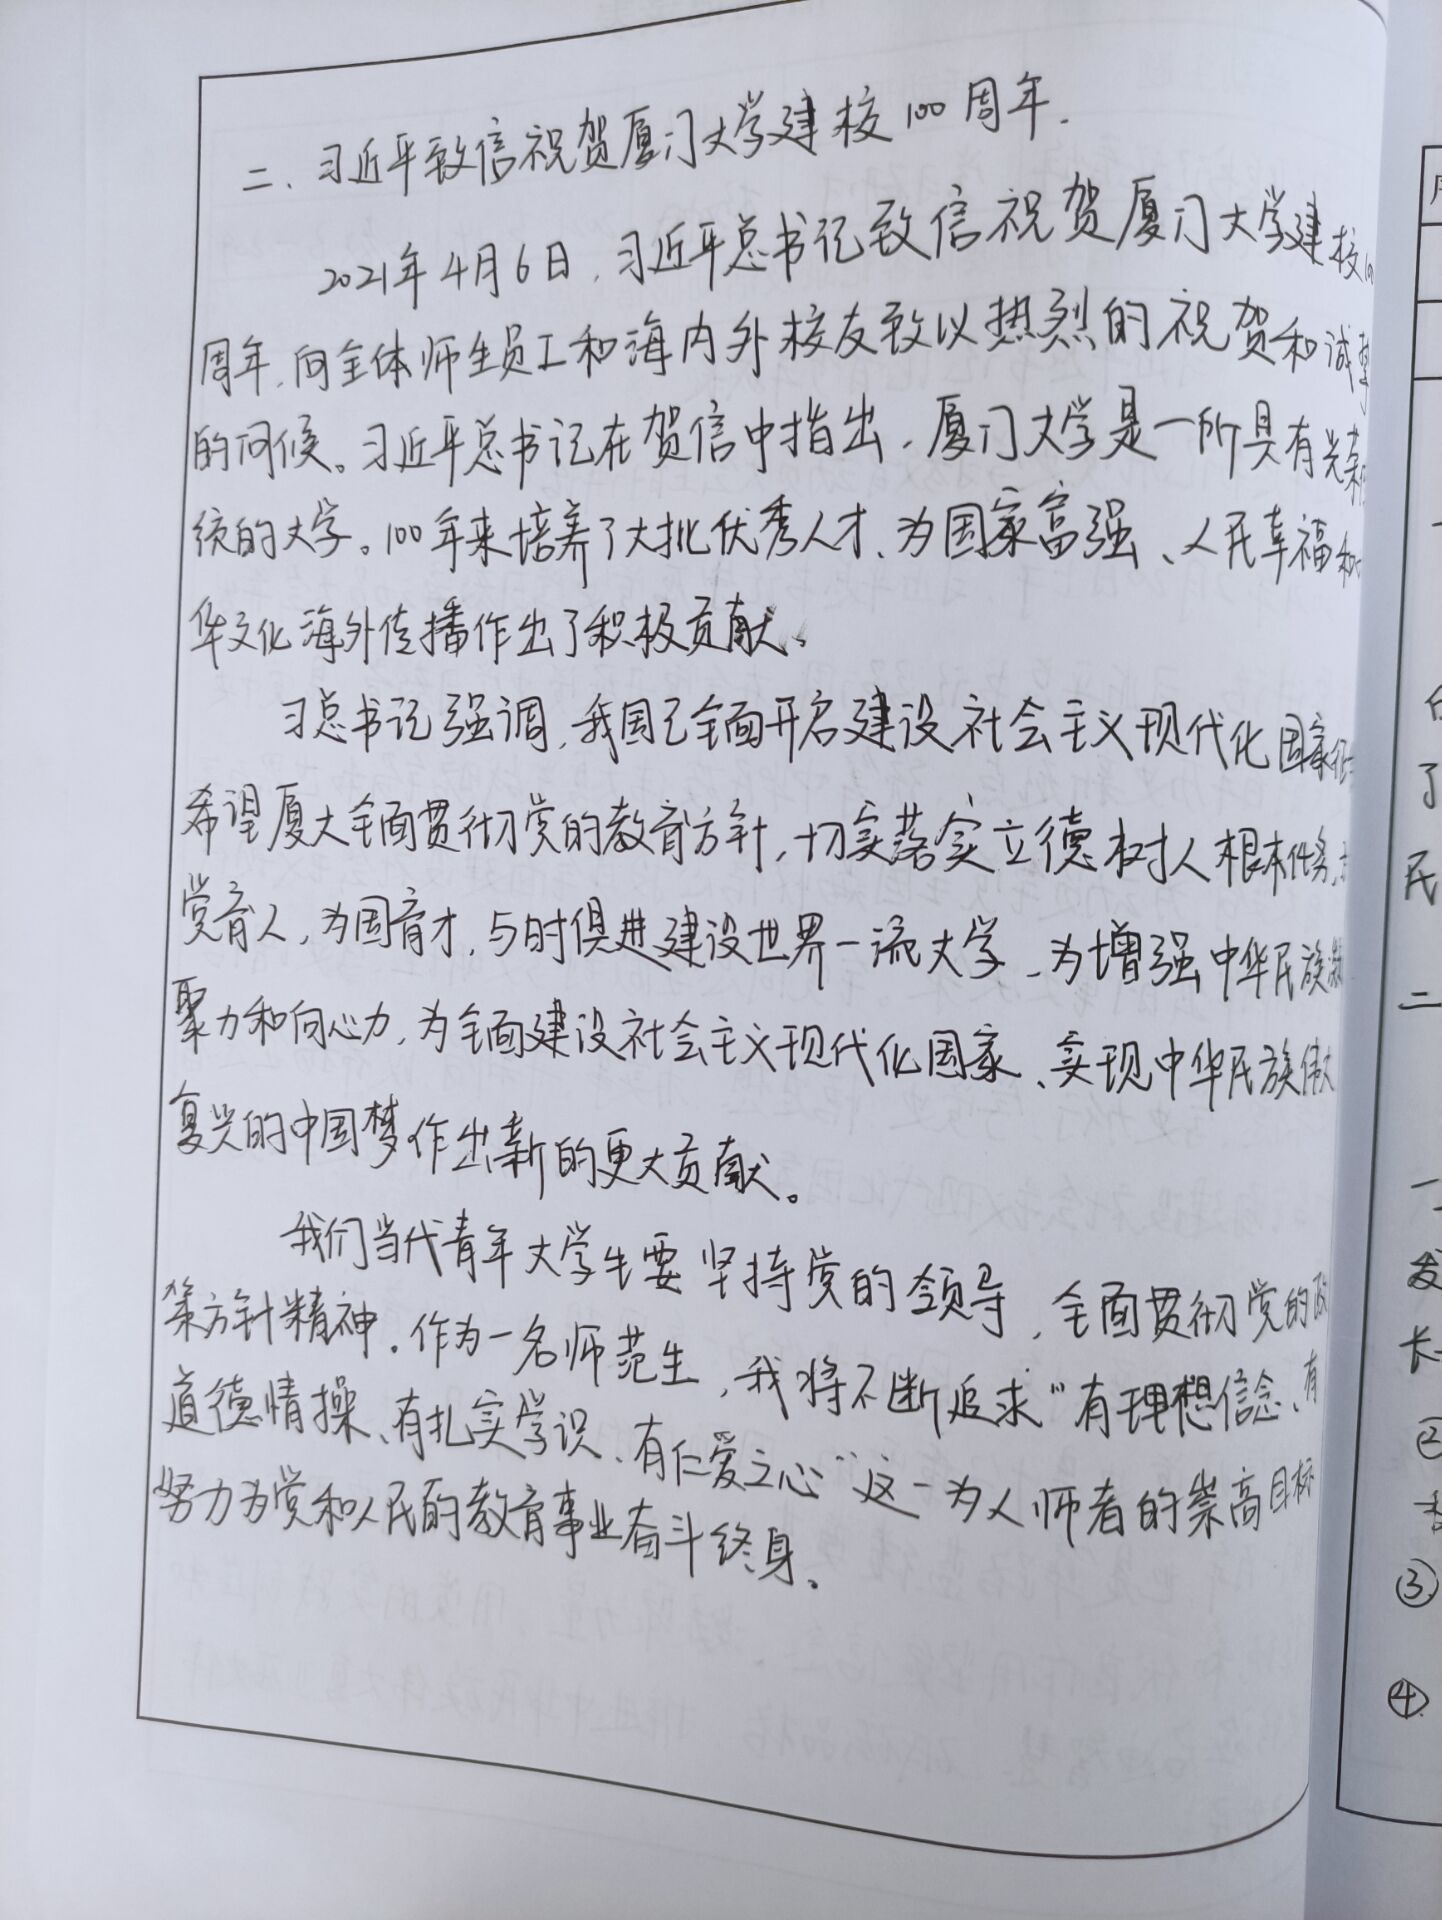 二、习近平致信祝贺厦门大学建校100周年.
2021年4月6日,习近平总书记致信祝贺厦门大学建校
周年,向全体师生员工和海内外校友致以热烈的祝贺和诚挚
的问候。习近平总书记在贺信中指出,厦门大学是一所具有光荣
统的大学。100年来培养了大批优秀人才、为国家富强、人民幸福和
华文化海外传播作出了积极贡献。
习总书记强调,我国已全面开启建设社会主义现代化国家
希望厦大全面贯彻党的教育方针,切实落实立德树人根本任务,
党育人,为国育才,与时俱进建设世界一流大学,为增强中华民族
聚力和向心力,为全面建设社会主义现代化国家、实现中华民族伟大
复兴的中国梦作出新的更大贡献。
我们当代青年大学生要坚持党的领导,全面贯彻党的政
策方针精神。作为一名师范生,我将不断追求“有理想信念、有
道德情操、有扎实学识、有仁爱之心”这一为人师者的崇高目标
努力为党和人民的教育事业奋斗终身。
了
民
二
一
发
长
②
③
④